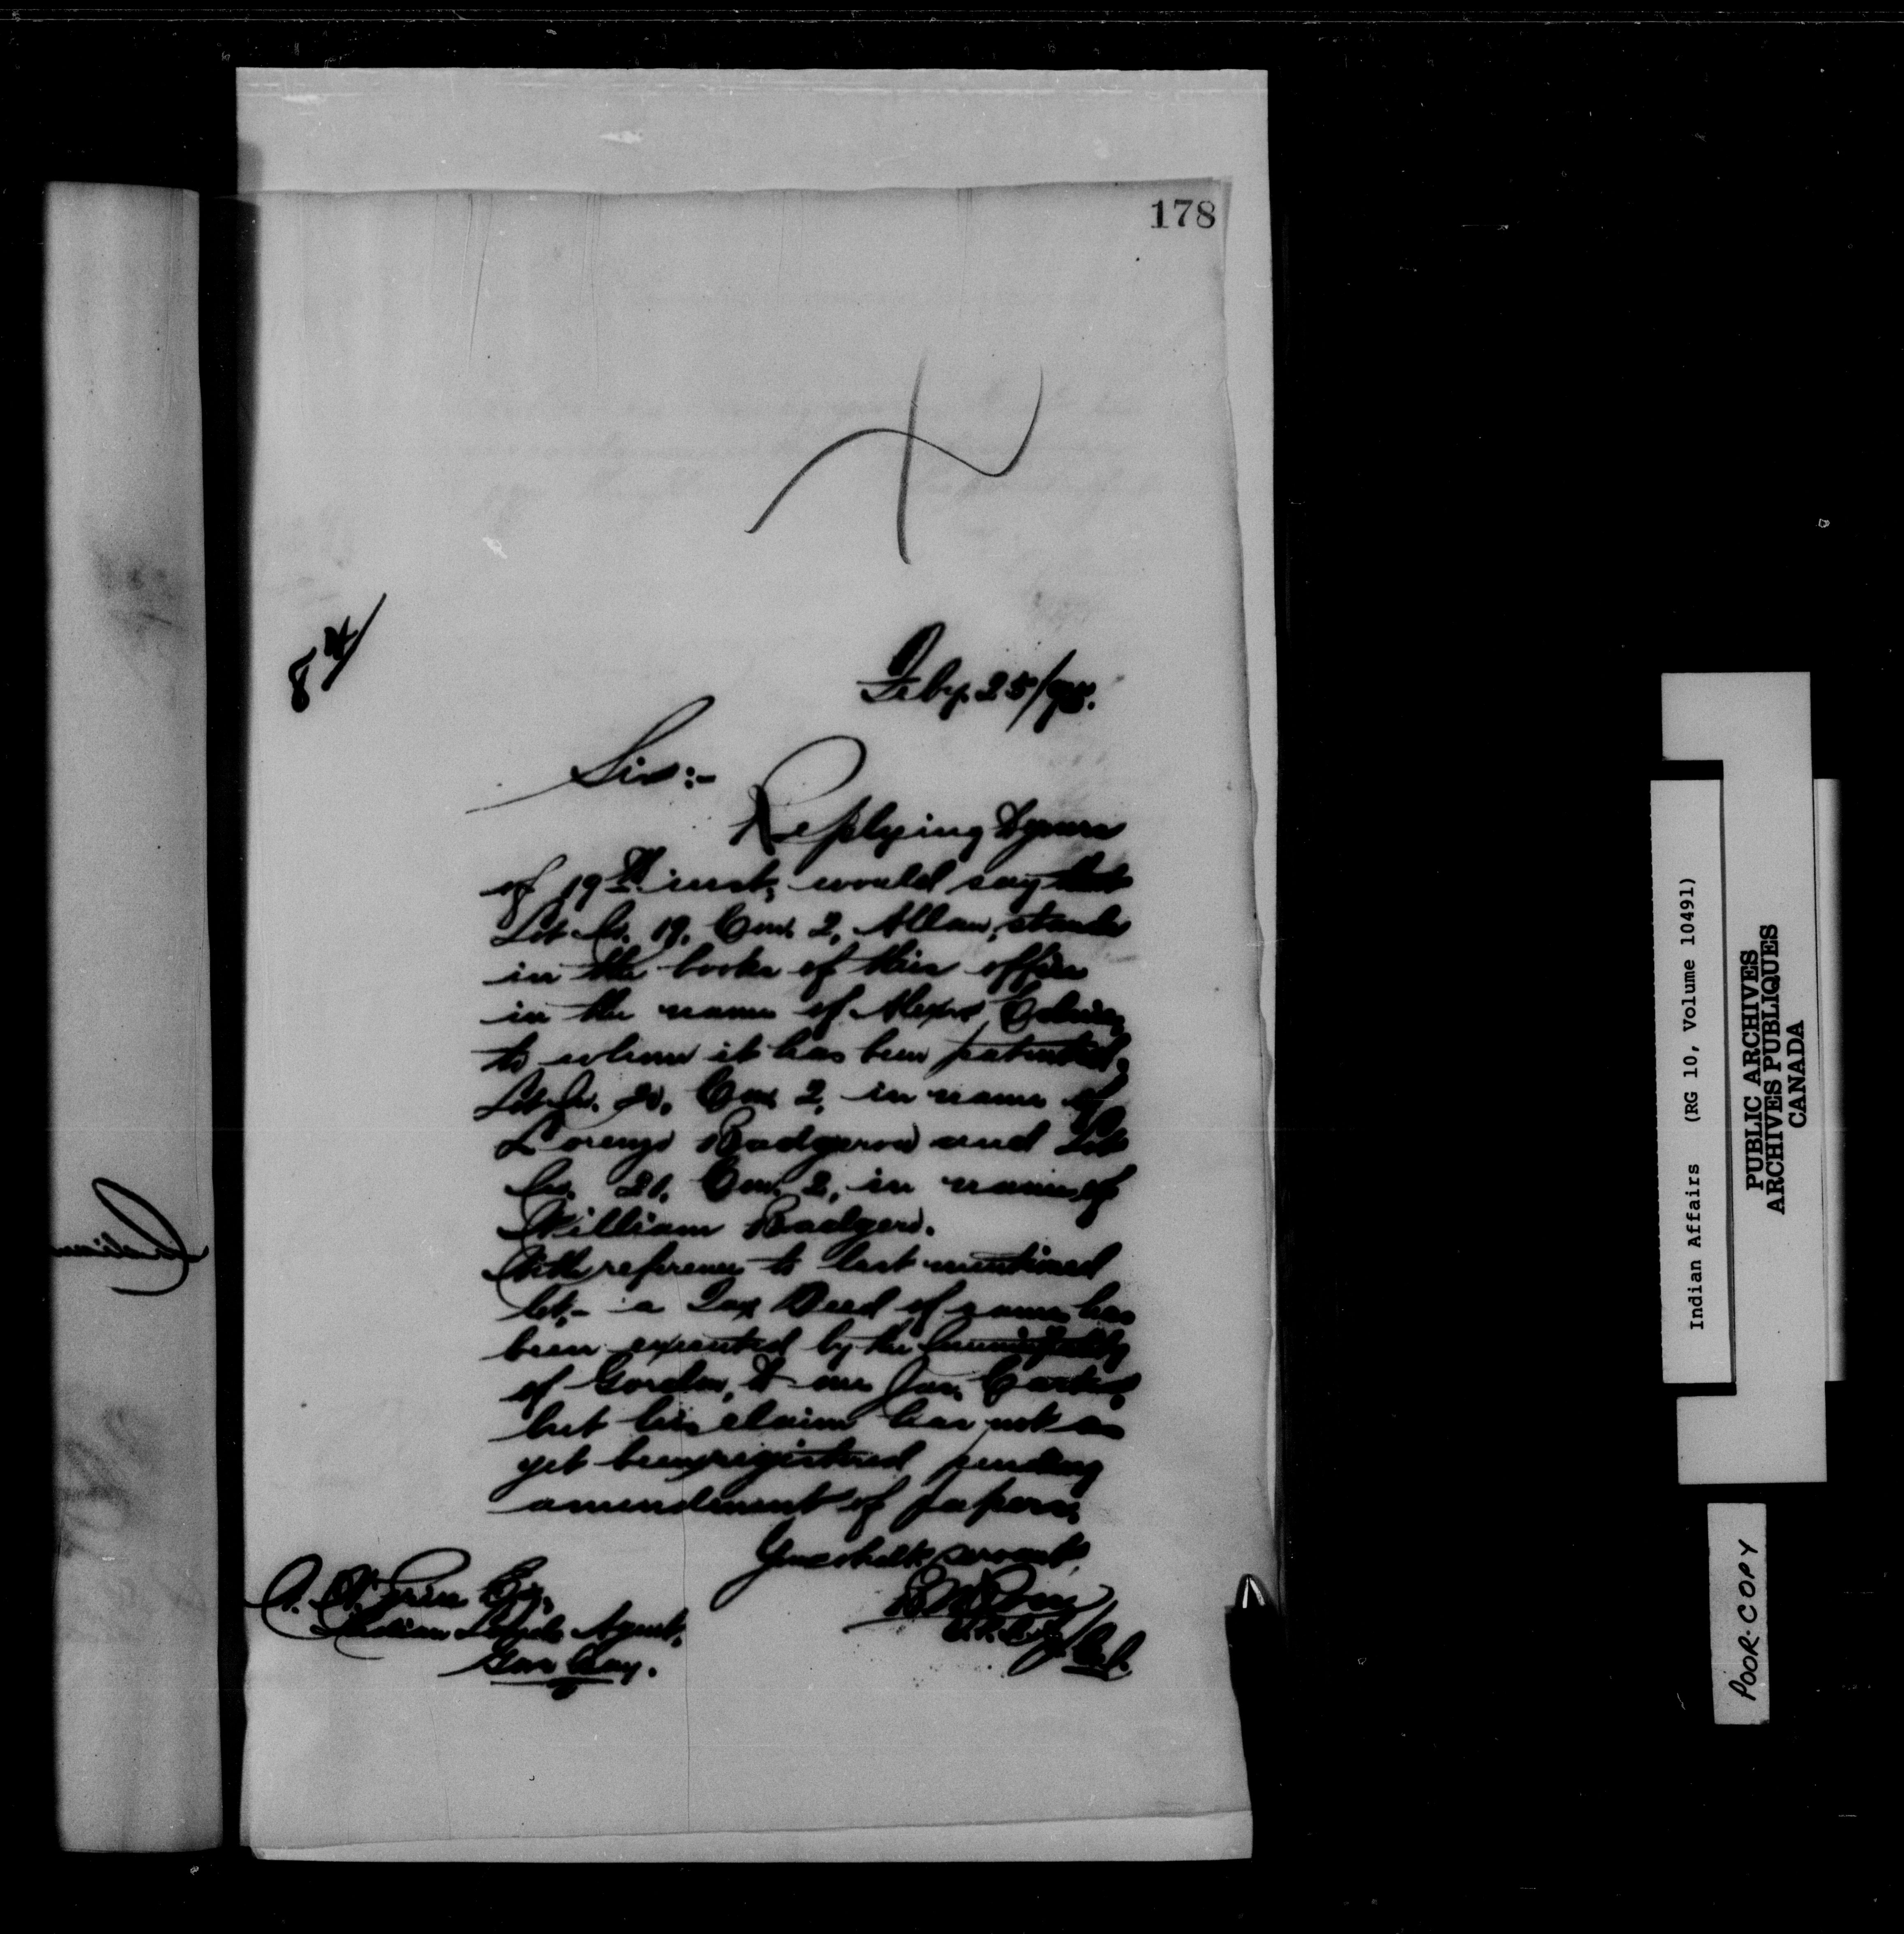 178
Feby. 25/95.
Sir:-
Replying to yours
of 19th inst, would say that
Lot No. 19, Con. 2, Allan, stands
in the books of this office
in the name of Alexr
to whom it has been patented.
Lot No. 20, Con 2, in name of
Lorenzo Badgerow and Lot
No. 21, Con. 2, in name of
William Badgero.
With reference to last mentioned
lot,- a Tax Deed of same has
been executed by the Municipality
of Gordon, to one Jas.
but his claim has not as
yet been registered pending
amendment of papers.
Your obdt servant,
Esq,
Indian Lands Agent,
Gore Bay.
Indian Affairs (RG 10, Volume 10491)
PUBLIC ARCHIVES
ARCHIVES PUBLIQUES
CANADA
POOR-COPY